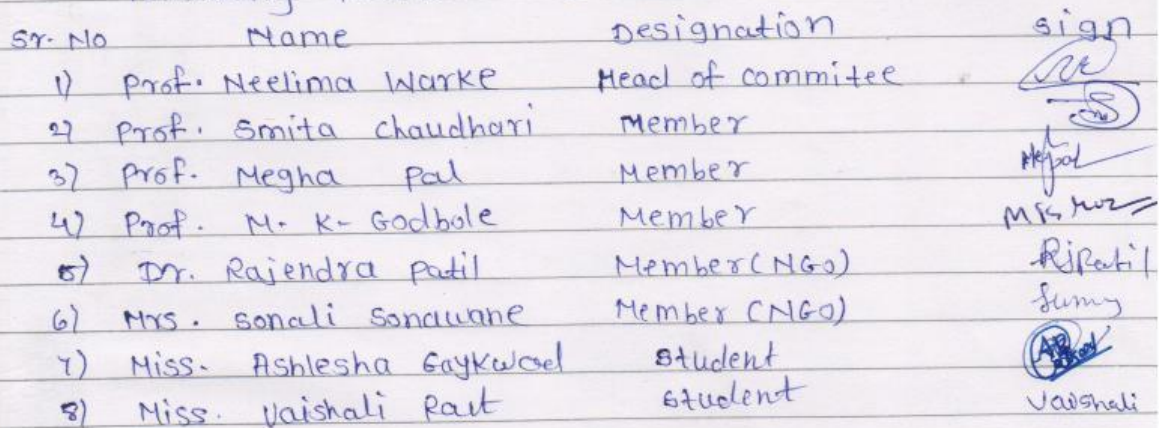 Sr. No Name Designation sign
1) Prof. Neelima Warke Head of commitee
2) Prof. Smita Chaudhari Member
3) Prof. Megha Pal Member
4) Prof. M. K. Godbole Member
5) Dr. Rajendra Patil Member (NGO) RjPatil
6) Mrs. Sonali Sonawane Member (NGO)
7) Miss. Ashlesha Gaykwad Student
8) Miss. Vaishali Raut Student Vaishali